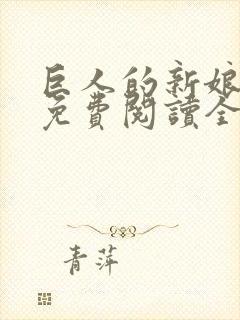 巨人的新娘
免費閱讀全
青萍